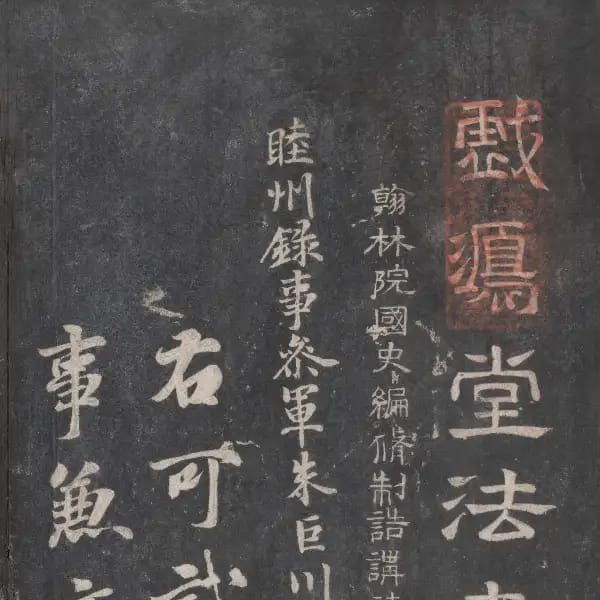 戲鴻堂法
翰林院國史編脩制誥講
睦州錄事叅軍朱巨川
右可試
事兼